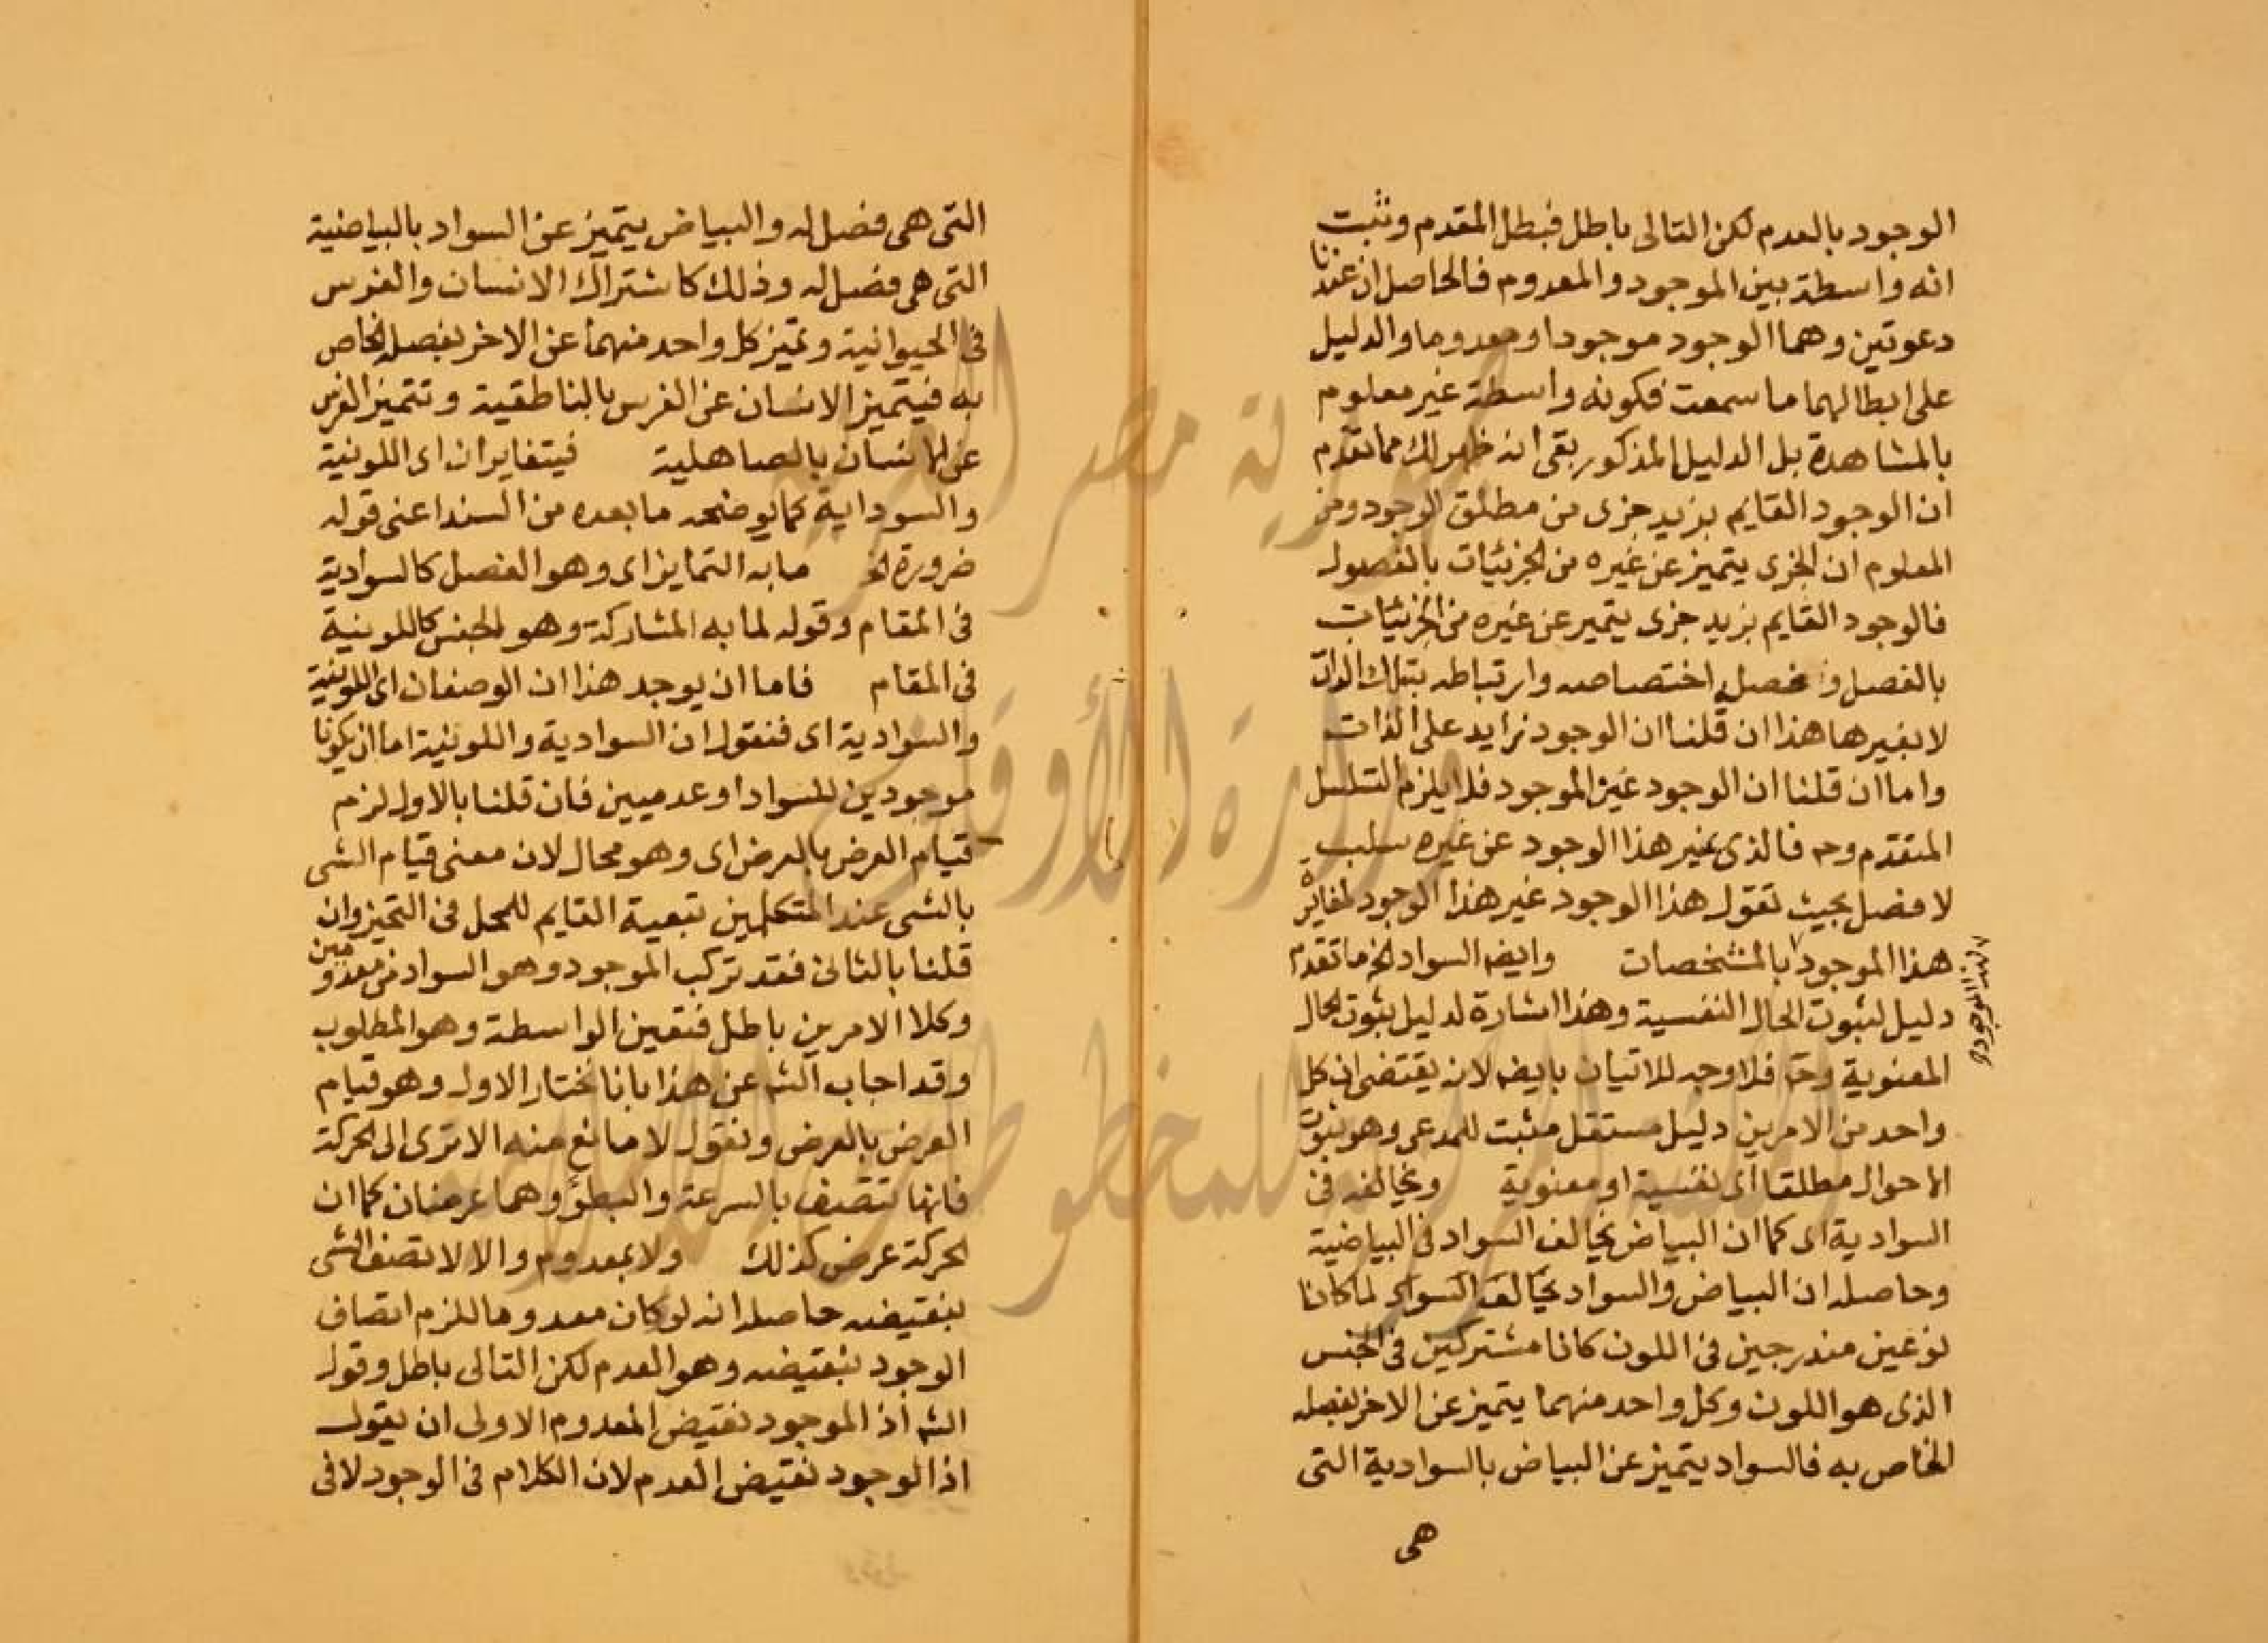 الوجود بالعدم لكن التالى باطل فبطل المقدم وثبت
انه واسطة بين الموجود والمعدوم فالحاصل ان عندنا
دعوتين وهما الوجود موجودا ومعدوما والدليل
على ابطالهما ما سمعت فكونه واسطة غير معلوم
بالمشاهدة بل الدليل المذكور بقى انه ظهر لك مما تقدم
ان الوجود القايم بزيد جزى من مطلق الوجود ومن
المعلوم ان الجزى يتميز عن غيره من الجزئيات بالفصول
فالوجود القايم بزيد جزى يتميز عن غيره من الجزئيات
بالفصل وفصله اختصاصه وارتباطه بتلك الذات
لا بغيرها هذا ان قلنا ان الوجود زايد على الذات
واما ان قلنا ان الوجود عين الموجود فلا يلزم التسلسل
المتقدم وح فالذى يميز هذا الوجود عن غيره سلب
لا فصل بحيث تقول هذا الوجود غير هذا الوجود لمغايرة
هذا الموجود بالمشخصات وايضه السواد الخ ما تقدم
لهذا الموجود صح
دليل لثبوت الحال النفسية وهذا اشارة لدليل ثبوت الحال
المعنوية وح فلا وجه للاتيان بايضه لانه يقتضى ان كل
واحد من الامرين دليل مستقل مثبت للمدعى وهو ثبوت
الاحوال مطلقا اى نفسية او معنوية ويخالفه فى
السوادية اى كما ان البياض يخالف السواد فى البياضية
وحاصله ان البياض والسواد يخالف السواد لما كانا
نوعين مندرجين فى اللون كانا مشتركين فى الجنس
الذى هو اللون وكل واحد منهما يتميز عن الاخر بفصله
الخاص به فالسواد يتميز عن البياض بالسوادية التى
هى
التى هى فصل له والبياض يتميز عن السواد بالبياضية
التى هى فصل له وذلك كاشتراك الانسان والفرس
فى الحيوانية وتميز كل واحد منهما عن الاخر بفصله الخاص
به فيتميز الانسان عن الفرس بالناطقية وتتميز الفرس
عن الانسان بالصاهلية فيتغايران اى اللونية
والسودايية كما يوضحه ما بعده من السند اعنى قوله
ضرورة الخ ما به التمايز اى وهو الفصل كالسوادية
فى المقام وقوله لما به المشاركة وهو الجنس كاللونية
فى المقام فاما ان يوجد هذا ان الوصفان اى اللونية
والسوادية اى فنقول ان السوادية واللونية اما ان يكونا
موجودين للسواد او عدميين فان قلنا بالاول لزم
قيام العرض بالعرض اى وهو محال لان معنى قيام الشى
بالشى عند المتكلمين تبعية القايم للمحل فى التحيز وان
قلنا بالثانى فقد تركب الموجود وهو السواد من معدومين
وكلا الامرين باطل فتعين الواسطة وهو المطلوب
وقد اجاب الشه عن هذا بانا نختار الاول وهو قيام
العرض بالعرض ونقول لا مانع منه الا ترى الى الحركة
فانها تتصف بالسرعة والبطؤ وهما عرضان كما ان
الحركة عرض كذلك ولا بمعدوم والا لاتصف الشى
بنقيضه حاصله انه لو كان معدوما للزم اتصاف
الوجود بنقيضه وهو العدم لكن التالى باطل وقول
الشه اذ الموجود نقيض المعدوم الاولى ان يقول
اذ الوجود نقيض العدم لان الكلام فى الوجود لا فى